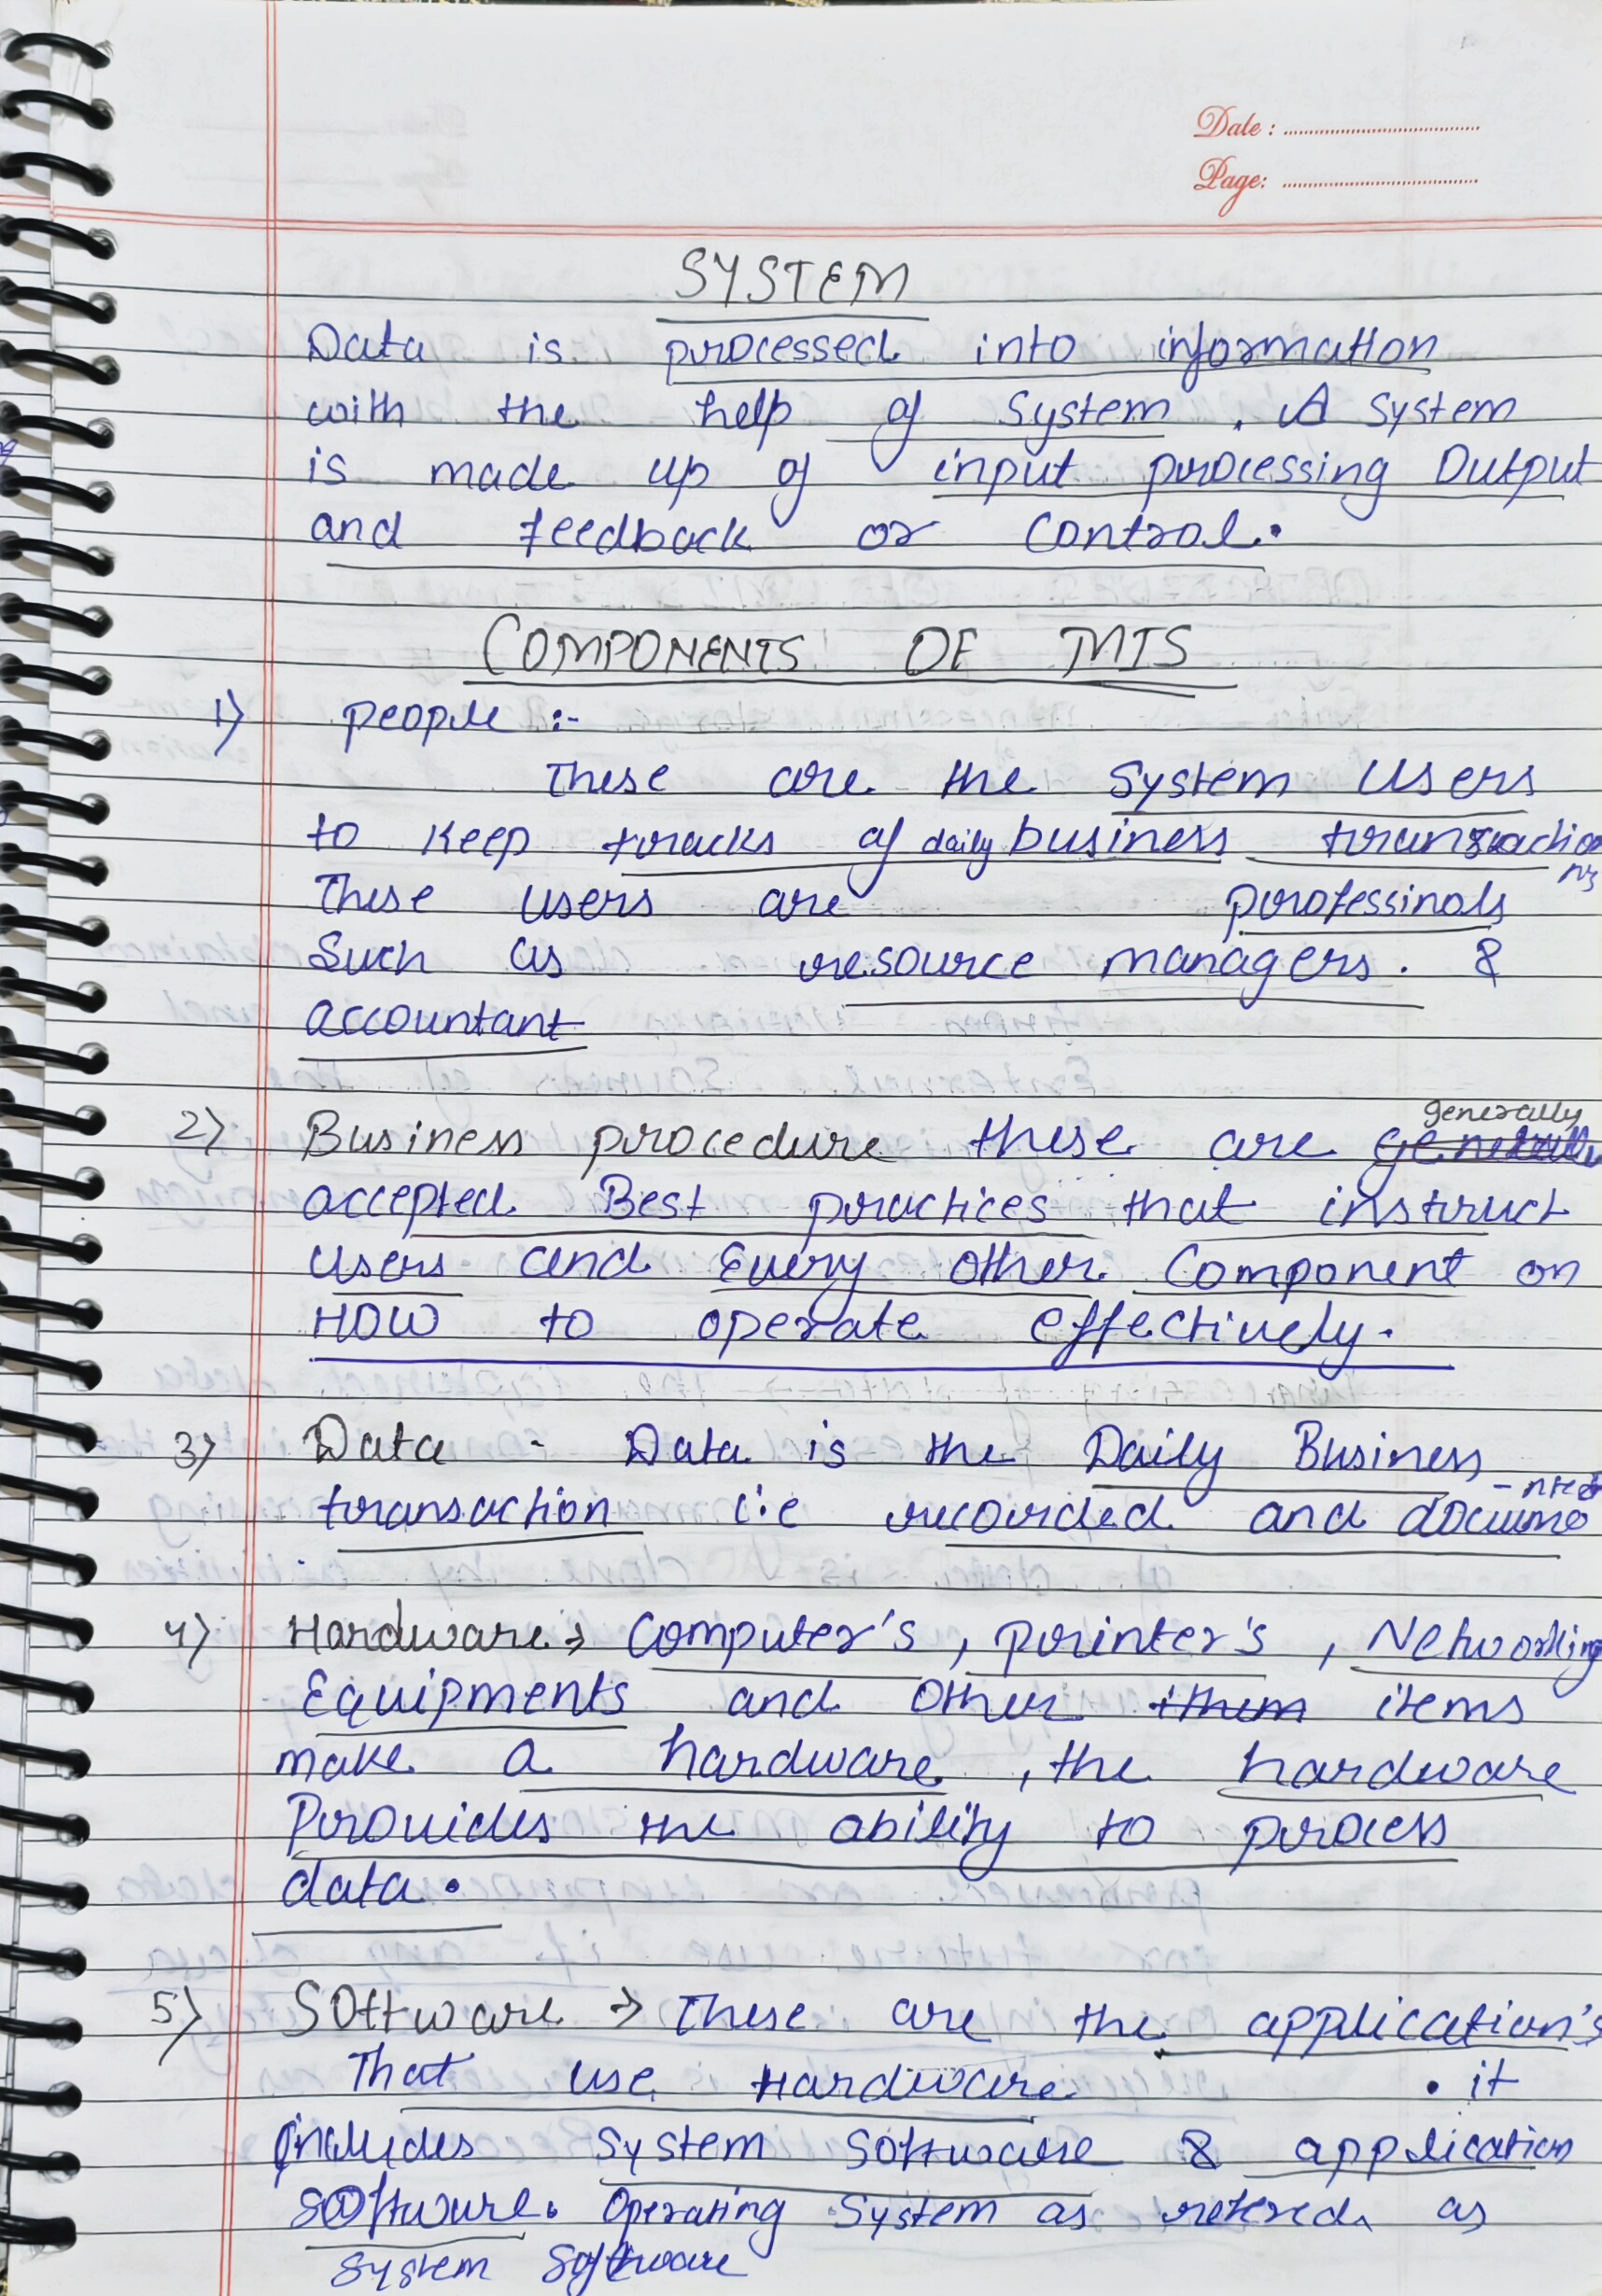 Date :
Page:
SYSTEM
Data is processed into information
with the help of System . A System
is made up of input processing Output
and feedback or Control.
COMPONENTS OF MIS
1) people :-
These are the System Users
to Keep tracks of daily business transactions
These users are professinals
Such as resource managers. &
accountant
2) Business procedure these are generally
accepted Best practices that instruct
Users and Every other Component on
HOW to operate effectively.
3) Data - Data is the Daily Business
transaction i.e recorded and documented
4) Hardware → Computer's , printer's , Networking
Equipments and Other them items
make a hardware , the hardware
Provides the ability to process
data.
5) Software → These are the application's
That use Hardware . it
includes System Software & application
Software. Operating System as refered as
System Software